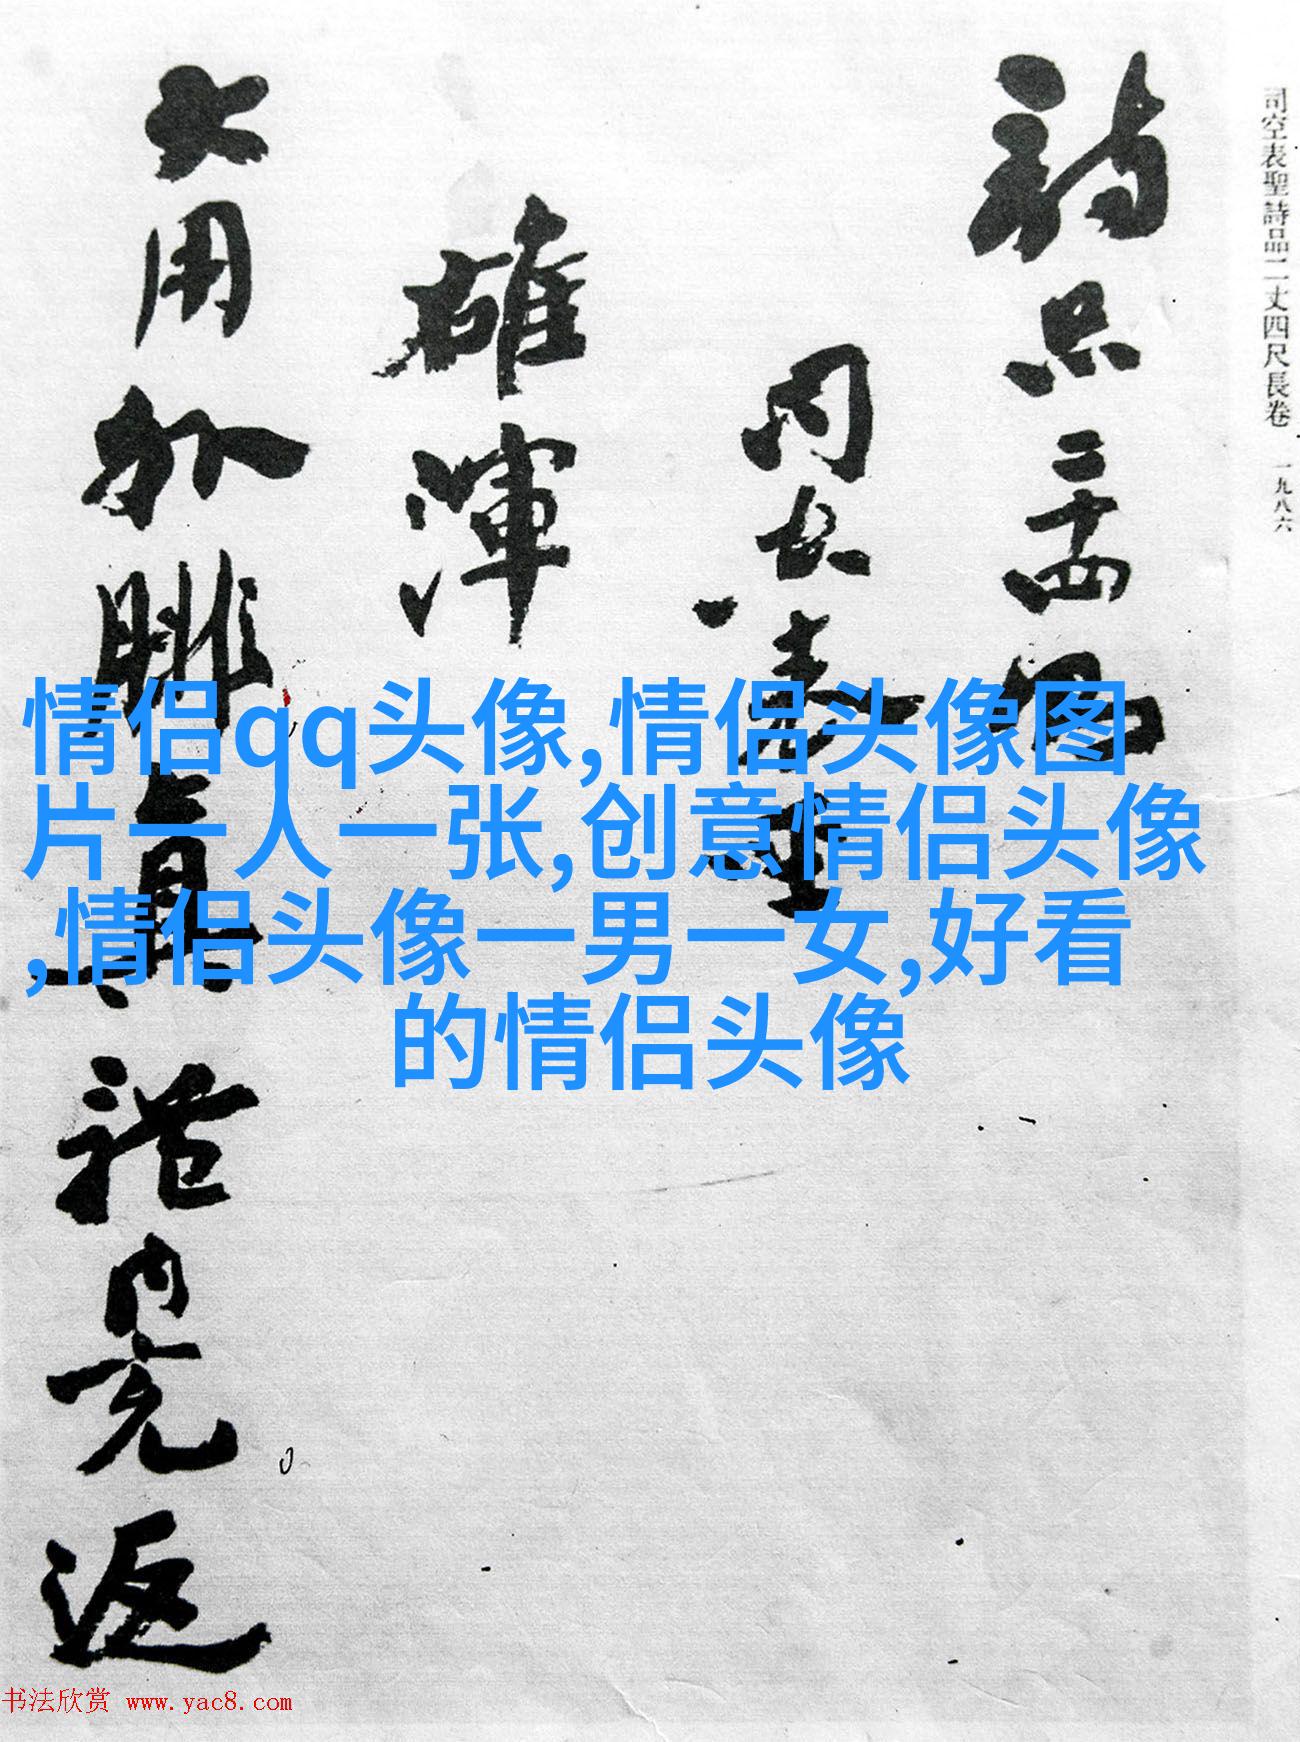 司空表聖詩品二丈四尺長卷 一九八六
詩品二十四則
司空表聖
雄渾
大用外腓真體內充返
情侣qq头像,情侣头像图
片一人一张,创意情侣头像
,情侣头像一男一女,好看
的情侣头像
书法欣赏 www.yac8.com